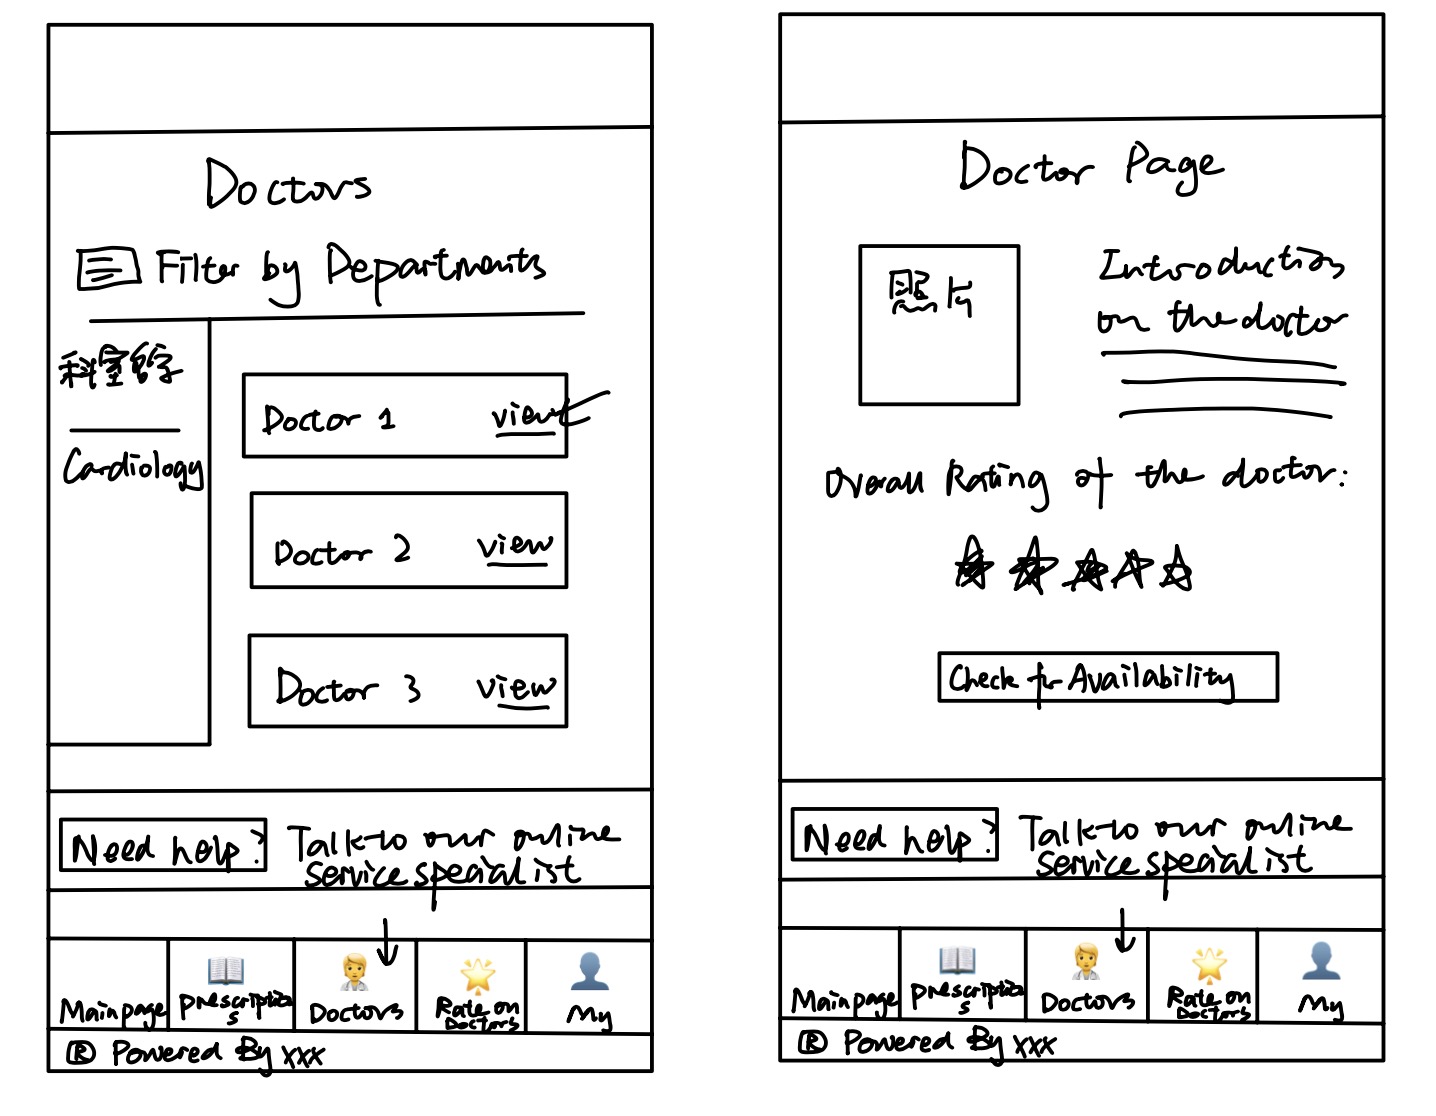 Doctors
Filter by Departments
科室名字
Cardiology
Doctor 1 view
Doctor 2 view
Doctor 3 view
Need help? Talk to our online
service specialist
Main page
Prescriptions
Doctors
Rate on
Doctors
My
® Powered By xxx
Doctor Page
照片
Introduction
on the doctor
Overall Rating of the doctor:
Check for Availability
Need help? Talk to our online
service specialist
Main page
Prescriptions
Doctors
Rate on
Doctors
My
® Powered By xxx